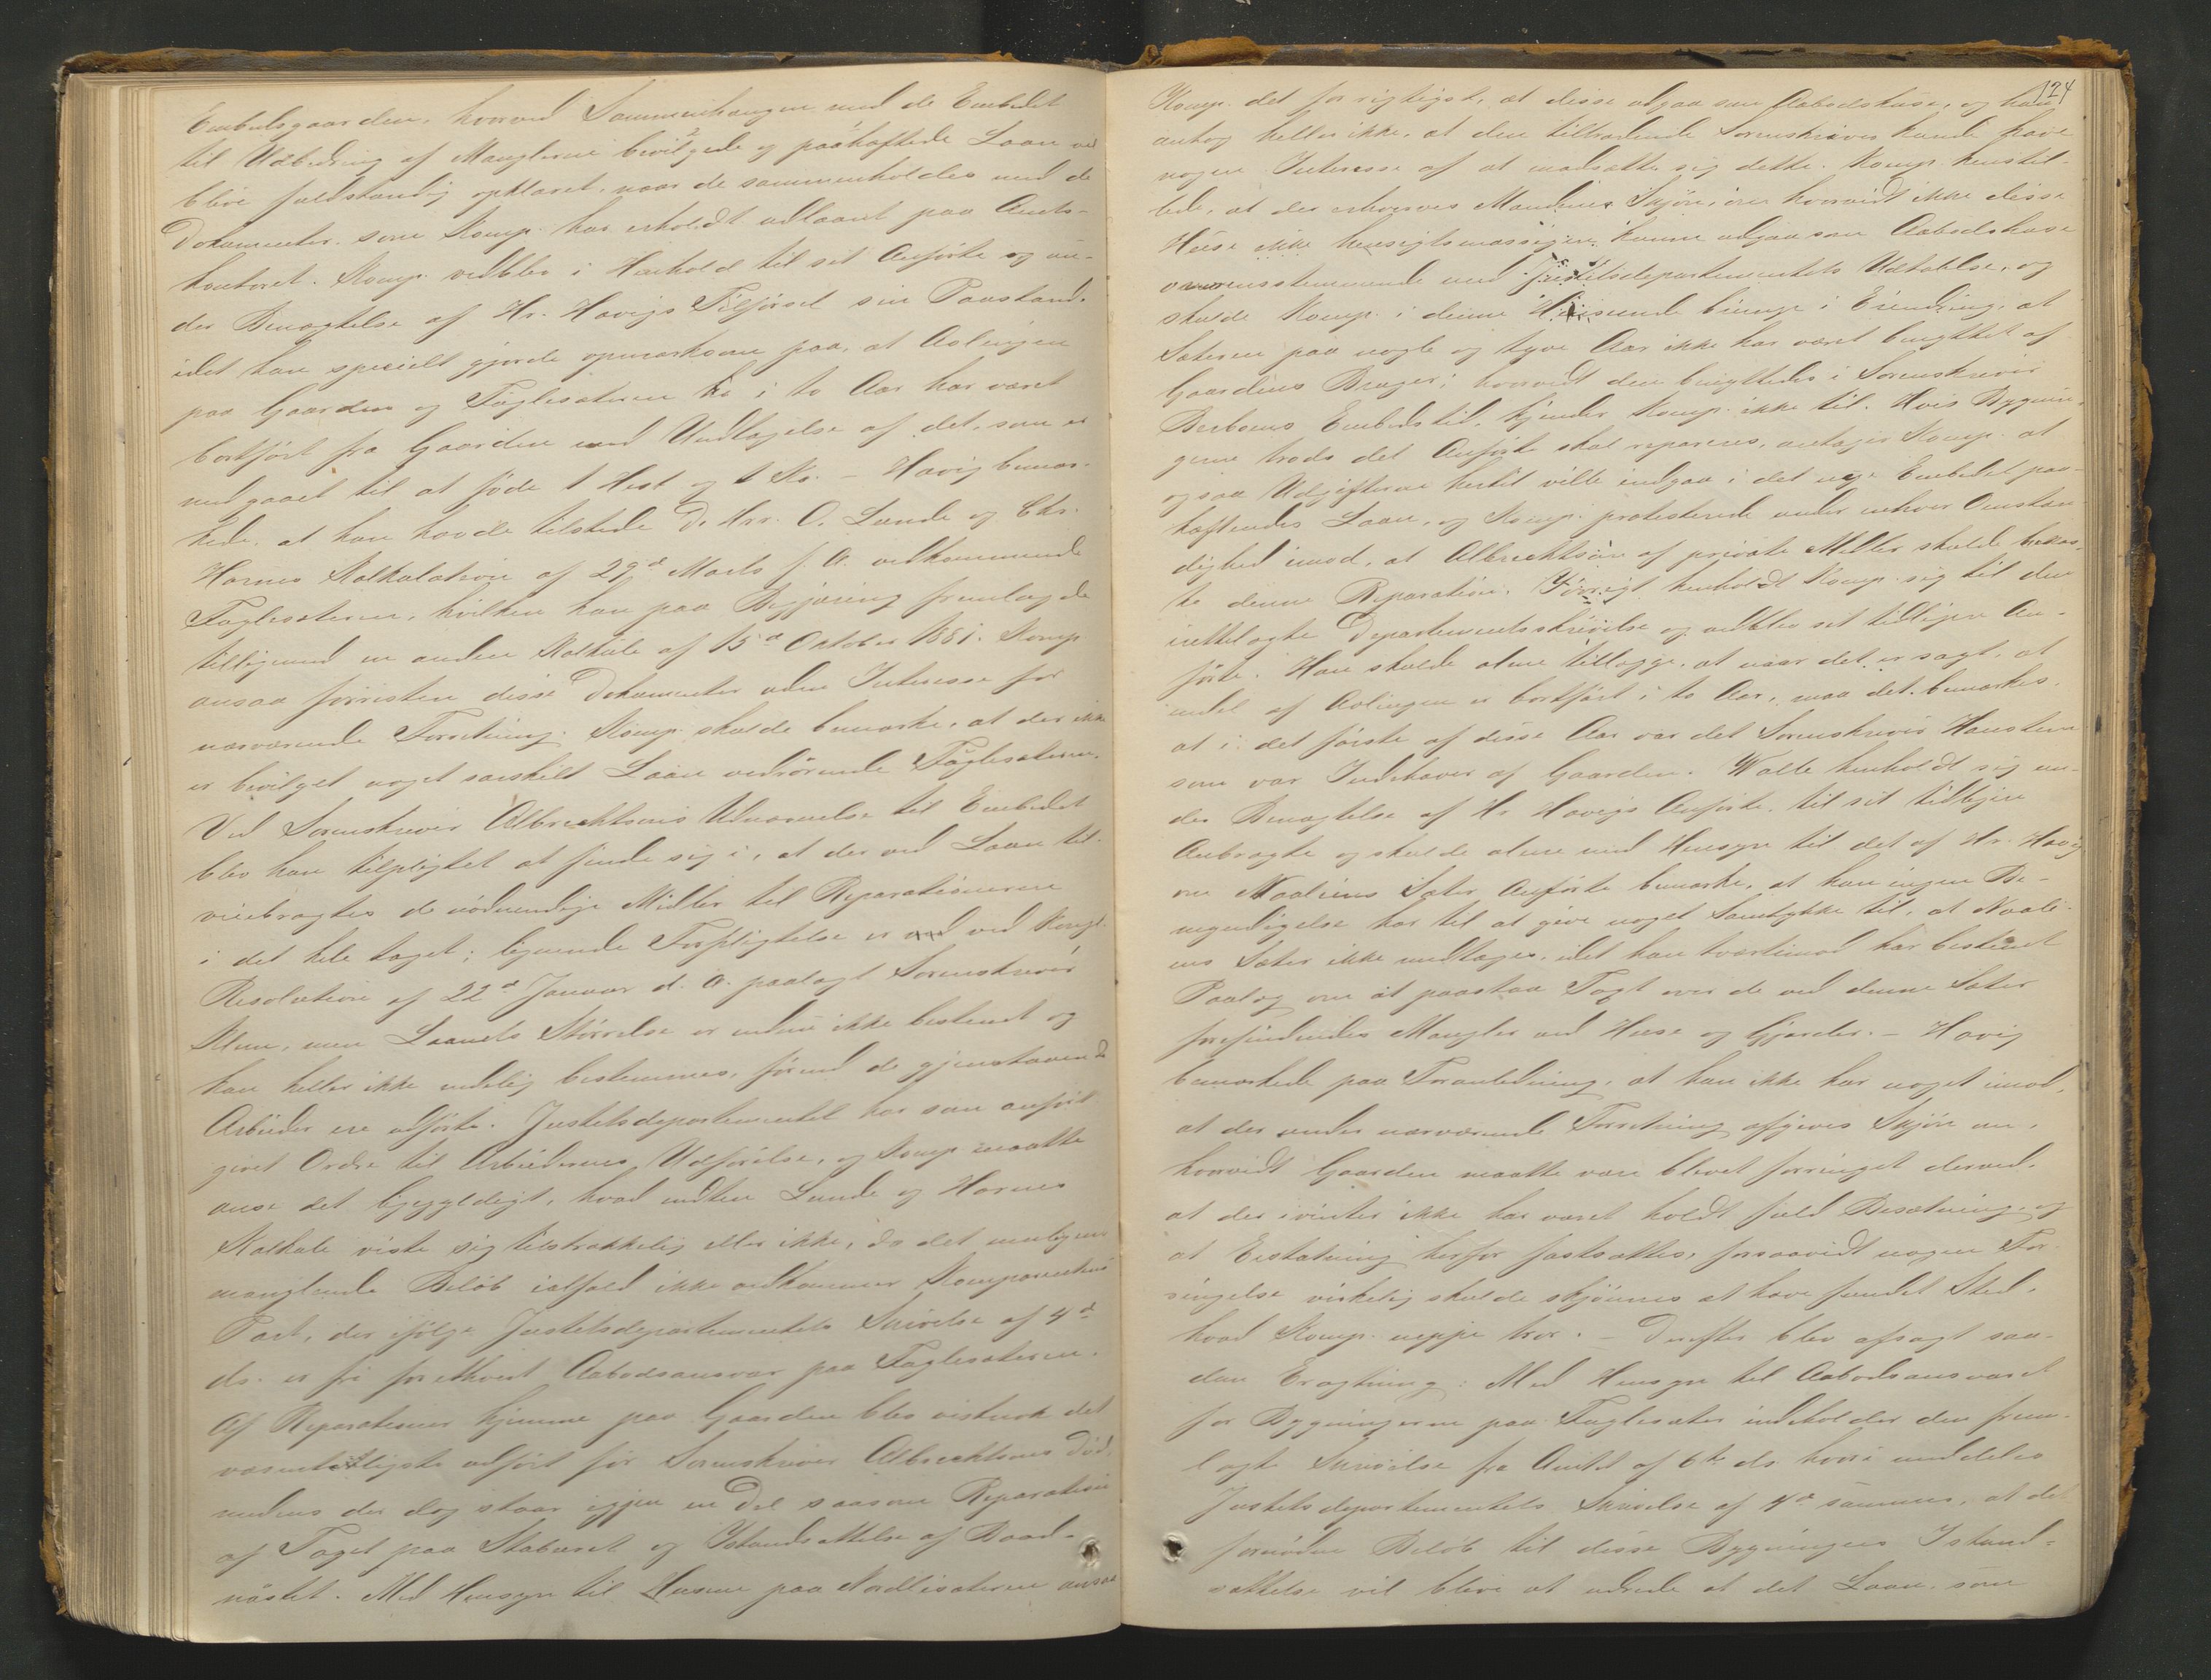 Embedsgaarden, hvorved Sammenhængen med de Embedet
til Udbedring af Manglerne bevilgede og paahæftede Laan vil
blive fuldstændig opklaret, naar de sammenholdes med de
Dokumenter, som Komp. har erholdt udlaant paa Amts-
kontoret. Komp. vedblev i Henhold til sit Anførte og un-
der Benægtelse af Hr. Havigs Tilførsel sin Paastand,
idet han specielt gjorde opmærksom paa, at Avlingen
paa Gaarden og Fuglesæteren i to Aar har været
bortført fra Gaarden med Undtagelse af det, som er
medgaaet til at føde 1 Hest og 1 Ko. – Havig bemær-
kede, at han havde tilstede D. Hrr. O. Lunde og Chr.
Harnes Kalkulation af 29d Marts f. A. vedkommende
Fuglesæteren, hvilken han paa Begjæring fremlagde
tilligemed en anden Kalkule af 15d Oktober 1881. Komp
ansaa forresten disse Dokumenter uden Interesse for
nærværende Forretning. Komp. skulde bemærke, at der ikke
er bevilget noget særskilt Laan vedrørende Fuglesæteren.
Ved Sorenskriver Albrechtsens Udnævnelse til Embedet
blev han tilpligtet at finde sig i, at der ved Laan til-
veiebragtes de nødvendige Midler til Reparationerne
i det hele taget; lignende Forpligtelse er ved Kongl.
Resolution af 22d Januar d. A. paalagt Sorenskriver
Klem, men Laanets Størrelse er endnu ikke bestemt og
kan heller ikke endelig bestemmes, førend de gjenstaaende
Arbeider ere udførte. Justitsdepartementet har som anført
givet Ordre til Arbeidernes Udførelse, og Komp maatte
anse det ligegyldigt, hvad enten Lunde og Harnes
Kalkule viste sig tilstrækkelig eller ikke, da det muligens
manglende Beløb ialfald ikke vedkommer Komparentens
Part, der ifølge Justitsdepartementets Skrivelse af 4d
ds. er fri for ethvert Aabodsansvar paa Fuglesæteren.
Af Reparationer hjemme paa Gaarden blev vistnok det
væsentligste udført før Sorenskriver Albrechtsens Død,
medens der dog staar igjen en Del saasom Reparation
af Taget paa Staburet og Istandsættelse af Baad-
nøstet. Med Hensyn til Husene paa Nordlisæteren ansaa
124
Komp. det for rigtigst, at disse udgaa som Aabodshuse, og han
antog heller ikke, at den tiltrædende Sorenskriver kunde have
nogen Interesse af at modsætte sig dette. Komp. henstil-
lede, at der erhverves Mændenes Skjøn, om hvorvidt ikke disse
Huse ikke hensigtsmæssigen kunne udgaa som Aabodshuse
overensstemmende med Justitsdepartementets Udtalelse, og
skulde Komp. i denne Henseende bringe i Erindring, at
Sæteren paa nogle og tyve Aar ikke har været benyttet af
Gaardens Bruger; hvorvidt den benyttedes i Sorenskriver
Berboms Embedstid, kjender Komp. ikke til. Hvis Bygnin-
gerne trods det Anførte skal repareres, antager Komp. at
ogsaa Udgifterne hertil ville indgaa i det nye Embedet paa-
hæftendes Laan, og Komp. protesterede under enhver Omstæn
dighed imod, at Albrechtsen af private Midler skulde bekos-
te denne Reparation. Forøvrigt henholdt Komp. sig til den
irettelagte Departementsskrivelse og vedblev sit tidligere An-
førte. Han skulde alene tillægge, at naar det er sagt, at
endel af Avlingen er bortført i to Aar, maa det bemærkes,
at i det første af disse Aar var det Sorenskriver Hansteen
som var Indehaver af Gaarden. Walle henholdt sig un-
der Benægtelse af Hr Havigs Anførte, til sit tidligere
Anbragte og skulde alene med Hensyn til det af Hr. Havig
om Noaliens Sæter Anførte bemærke, at han ingen Be-
myndigelse har til at give noget Samtykke til, at Noali-
ens Sæter ikke medtages, idet han tværtimod har bestemt
Paalæg om at paastaa Tagt over de ved denne Sæter
forefindendes Mangler ved Huse og Gjærder. – Havig
bemærkede paa Foranledning, at han ikke har noget imod,
at der under nærværende Forretning afgives Skjøn om,
hvorvidt Gaarden maatte være blevet forringet derved,
at der ivinter ikke har været holdt fuld Besætning, og
at Erstatning herfor fastsættes, forsaavidt nogen For-
ringelse virkelig skulde skjønnes at have fundet Sted,
hvad Komp. neppe tror. – Derefter blev afsagt saa-
dan Eragtning: Med Hensyn til Aabodsansvaret
for Bygningerne paa Fuglesæter indeholder den frem-
lagte Skrivelse fra Amtet af 6te ds. hvori meddeles
Justitsdepartementets Skrivelse af 4d samme, at det
fornødne Beløb til disse Bygningers Istand-
sættelse vil blive at udrede af det Laan, som